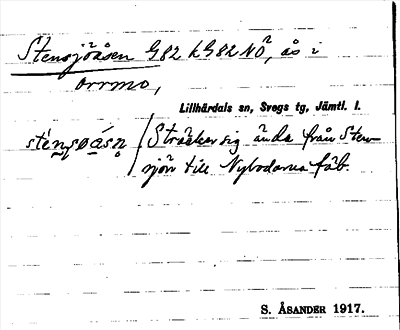 Stensjöåsen G82 LG82NÖ, ås i
orrmo,
Lillhärdals sn, Svegs tg, Jämtl. l.
Sträcker sig ända från Sten-
sjön till Nybodarna fäb.
S. ÅSANDER 1917.